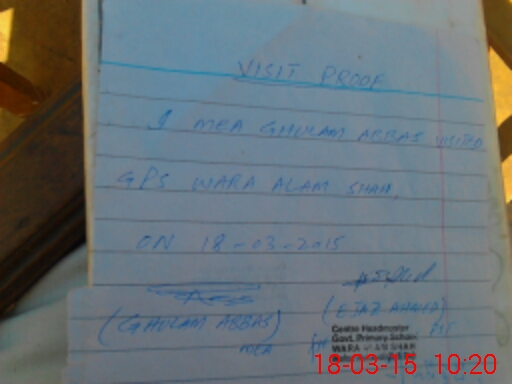 VISIT PROOF
I MEA GHULAM ABBAS VISITED
GPS WARA ALAM SHAH,
ON 18-03-2015
(GHULAM ABBAS)
MEA
(EJAZ AHMED)
PST
Centre Headmaster
Govt. Primary School
WARA ALAM SHAH
18-03-15 10:20